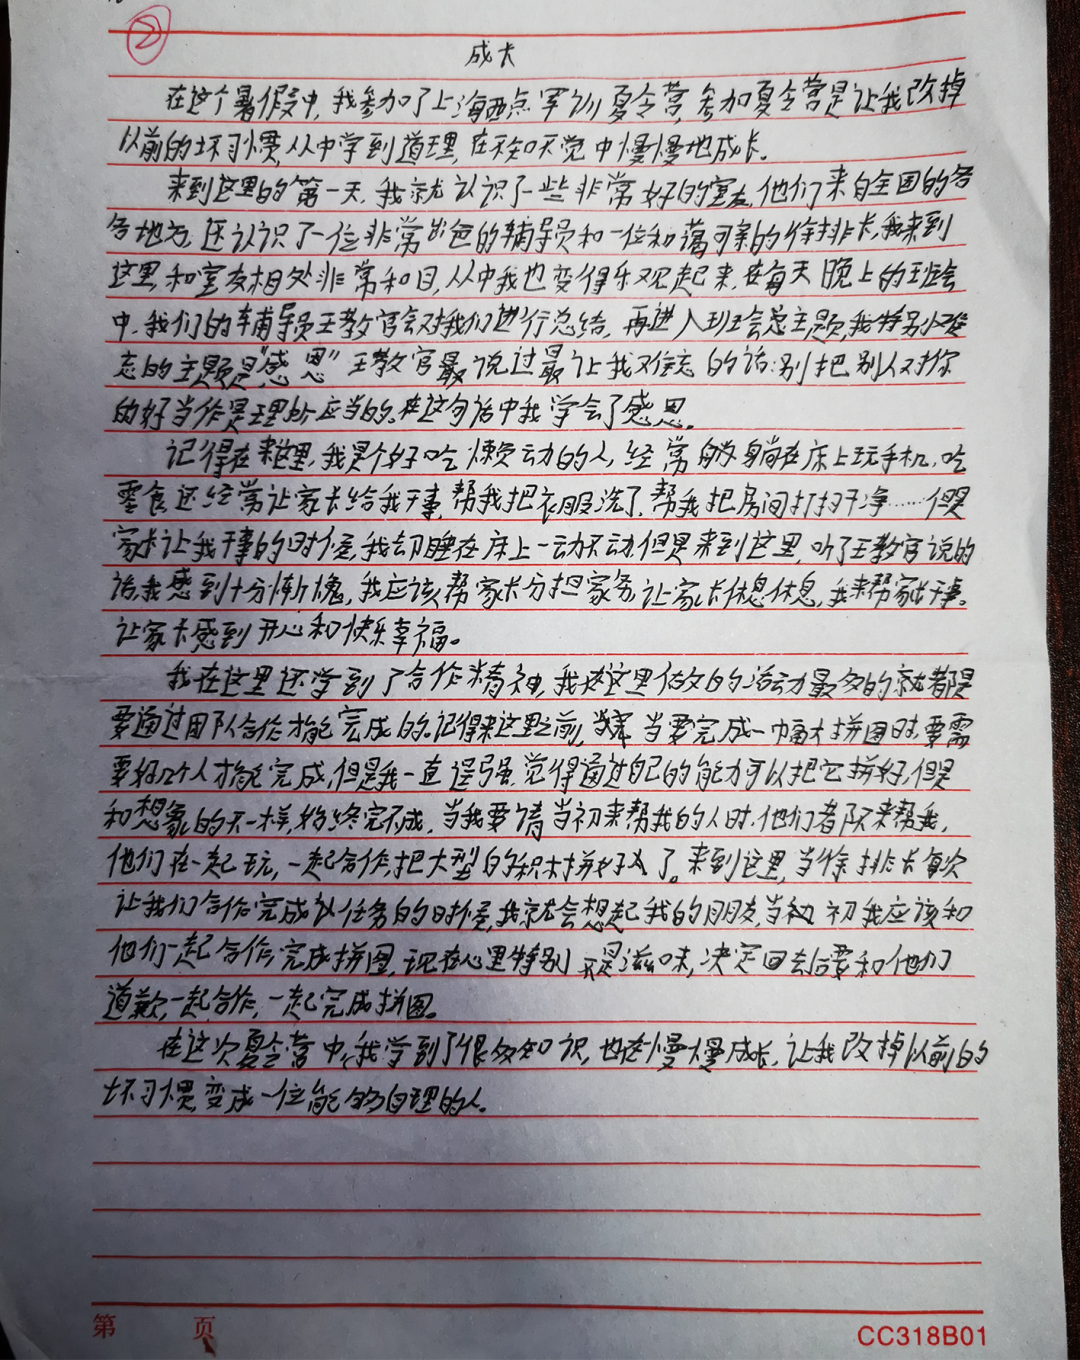 ②
成长
在这个暑假中,我参加了上海西点军训夏令营,参加夏令营是让我改掉
以前的坏习惯,从中学到道理,在不知不觉中慢慢地成长。
来到这里的第一天,我就认识了一些非常好的室友,他们来自全国的各
各地方,还认识了一位非常出色的辅导员和一位和蔼可亲的徐排长,我来到
这里,和室友相处非常和目,从中我也变得乐观起来,在每天晚上的班会
中,我们的辅导员王教官会对我们进行总结,再进入班会总主题,我特别难
忘的主题是“感恩”王教官最说过最让我难忘的话:别把别人对你
的好当作是理所应当的。在这句话中我学会了感恩。
记得在来这里,我是个好吃懒动的人,经常躺在床上玩手机,吃
零食还经常让家长给我干事,帮我把衣服洗了,帮我把房间打扫干净……但是
家长让我干事的时候,我却睡在床上一动不动但是来到这里,听了王教官说的
话,我感到十分惭愧,我应该帮家长分担家务,让家长休息休息,我来帮家长干事。
让家长感到开心和快乐幸福。
我在这里还学到了合作精神,我在这里做的活动最多的就都是
要通过团队合作才能完成的。记得来这里之前,当要完成一幅大拼图时,要需
要好几个人才能完成,但是我一直逞强,觉得通过自己的能力可以把它拼好,但是
和想象的不一样,始终完不成,当我要请当初来帮我的人时,他们都不来帮我,
他们在一起玩,一起合作,把大型的积木拼好了。来到这里,当徐排长每次
让我们合作完成以任务的时候,我就会想起我的朋友,当初我应该和
他们一起合作,完成拼图,现在心里特别不是滋味,决定回去后要和他们
道歉,一起合作,一起完成拼图。
在这次夏令营中,我学到了很多知识,也在慢慢成长,让我改掉以前的
坏习惯,变成一位能够自理的人。
第 页
CC318B01